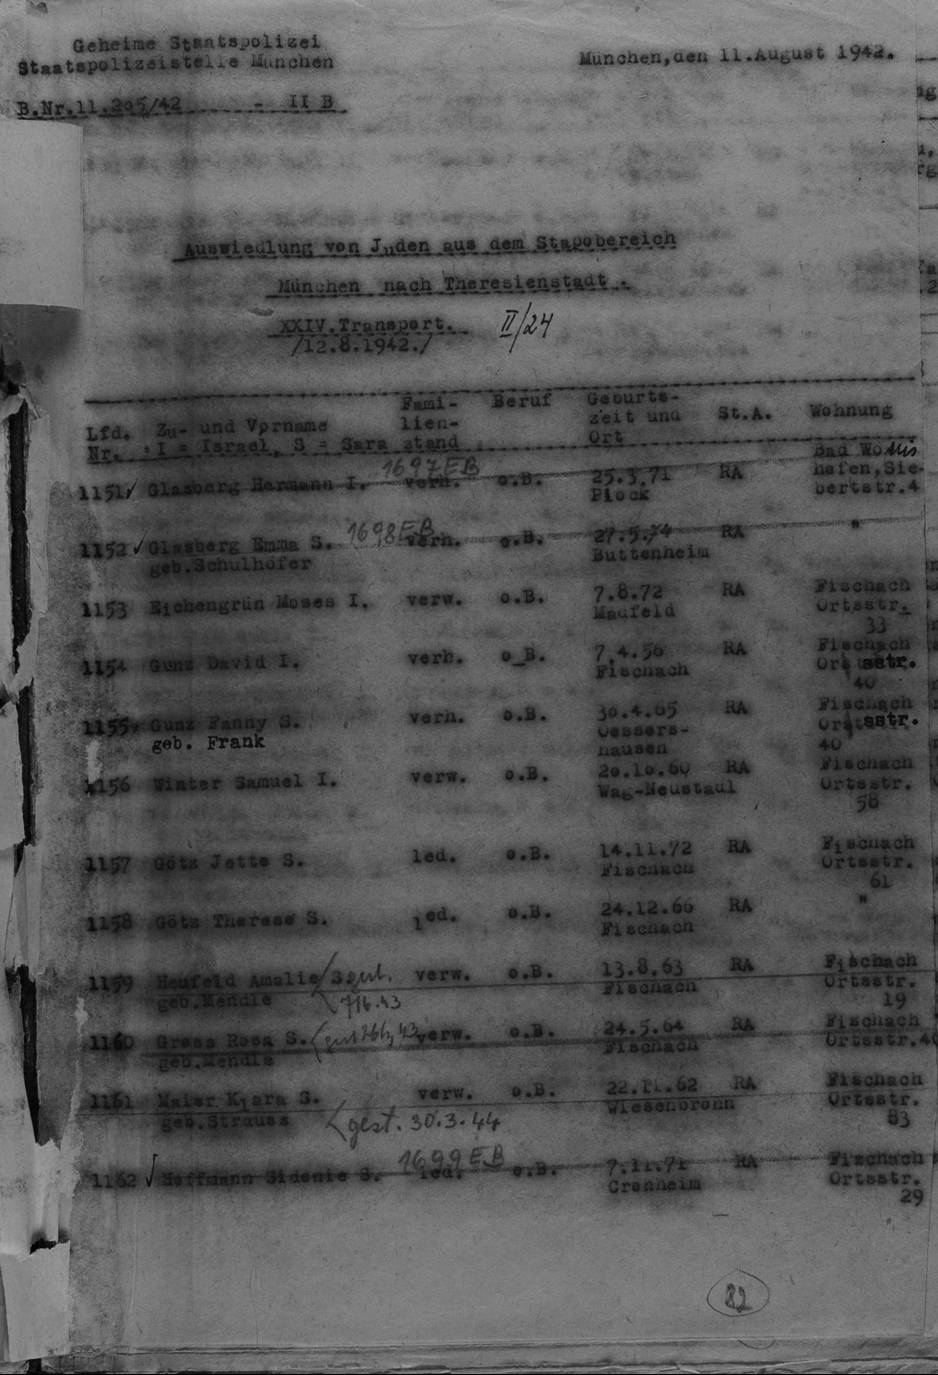 Geheime Staatspolizei
Staatspolizeistelle München
München,den 11.August 1942.
B.Nr.11.205/42 - II B
Aussiedlung von Juden aus dem Stapobereich
München nach Theresienstadt.
XXIV.Transport. II/24
/12.8.1942./
Lfd. Nr. Zu- und Vorname : I = Israel, S = Sara Familien-stand Beruf Geburts-zeit und Ort St.A. Wohnung
1697 EB
1151 Glasberg Hermann I. verh. o.B. 25.3.71 RA Bad Wöris
Plock hofen,Sie-
bertstr.4
1698 EB
1152 Glasberg Emma S. verh. o.B. 27.5.74 RA "
geb.Schulhöfer Buttenheim
1153 Eichengrün Moses I. verw. o.B. 7.8.72 RA Fischach
Ortsstr.
33
1154 Gunz David I. verh. o.B. 7.4.56 RA Fischach
Fischach Ortsstr.
40
1155 Gunz Fanny S. verh. o.B. 30.4.65 RA Fischach
geb. Frank hausen Ortsstr.
40
1156 Winter Samuel I. verw. o.B. 20.10.60 RA Fischach
Ortsstr.
58
1157 Götz Jette S. led. o.B. 14.11.72 RA Fischach
Fischach Ortsstr.
61
1158 Götz Therese S. led. o.B. 24.12.66 RA "
Fischach
1159 Heufeld Amalie S. verw. o.B. 13.8.63 RA Fischach
geb.Mendle 7/6.43 Fischach Ortsstr.
19
1160 Grass Rosa S. verw. o.B. 24.5.64 RA Fischach
geb.Mendle Fischach Ortsstr.40
1161 Maier Klara S. verw. o.B. 22.11.62 RA Fischach
geb.Strauss gest. 30.3.44 Wiesenbronn Ortsstr.
83
1699 EB
1162 Hoffmann Sidonie S. led. o.B. 7.11.71 RA Fischach
Cronheim Ortsstr.
29
82